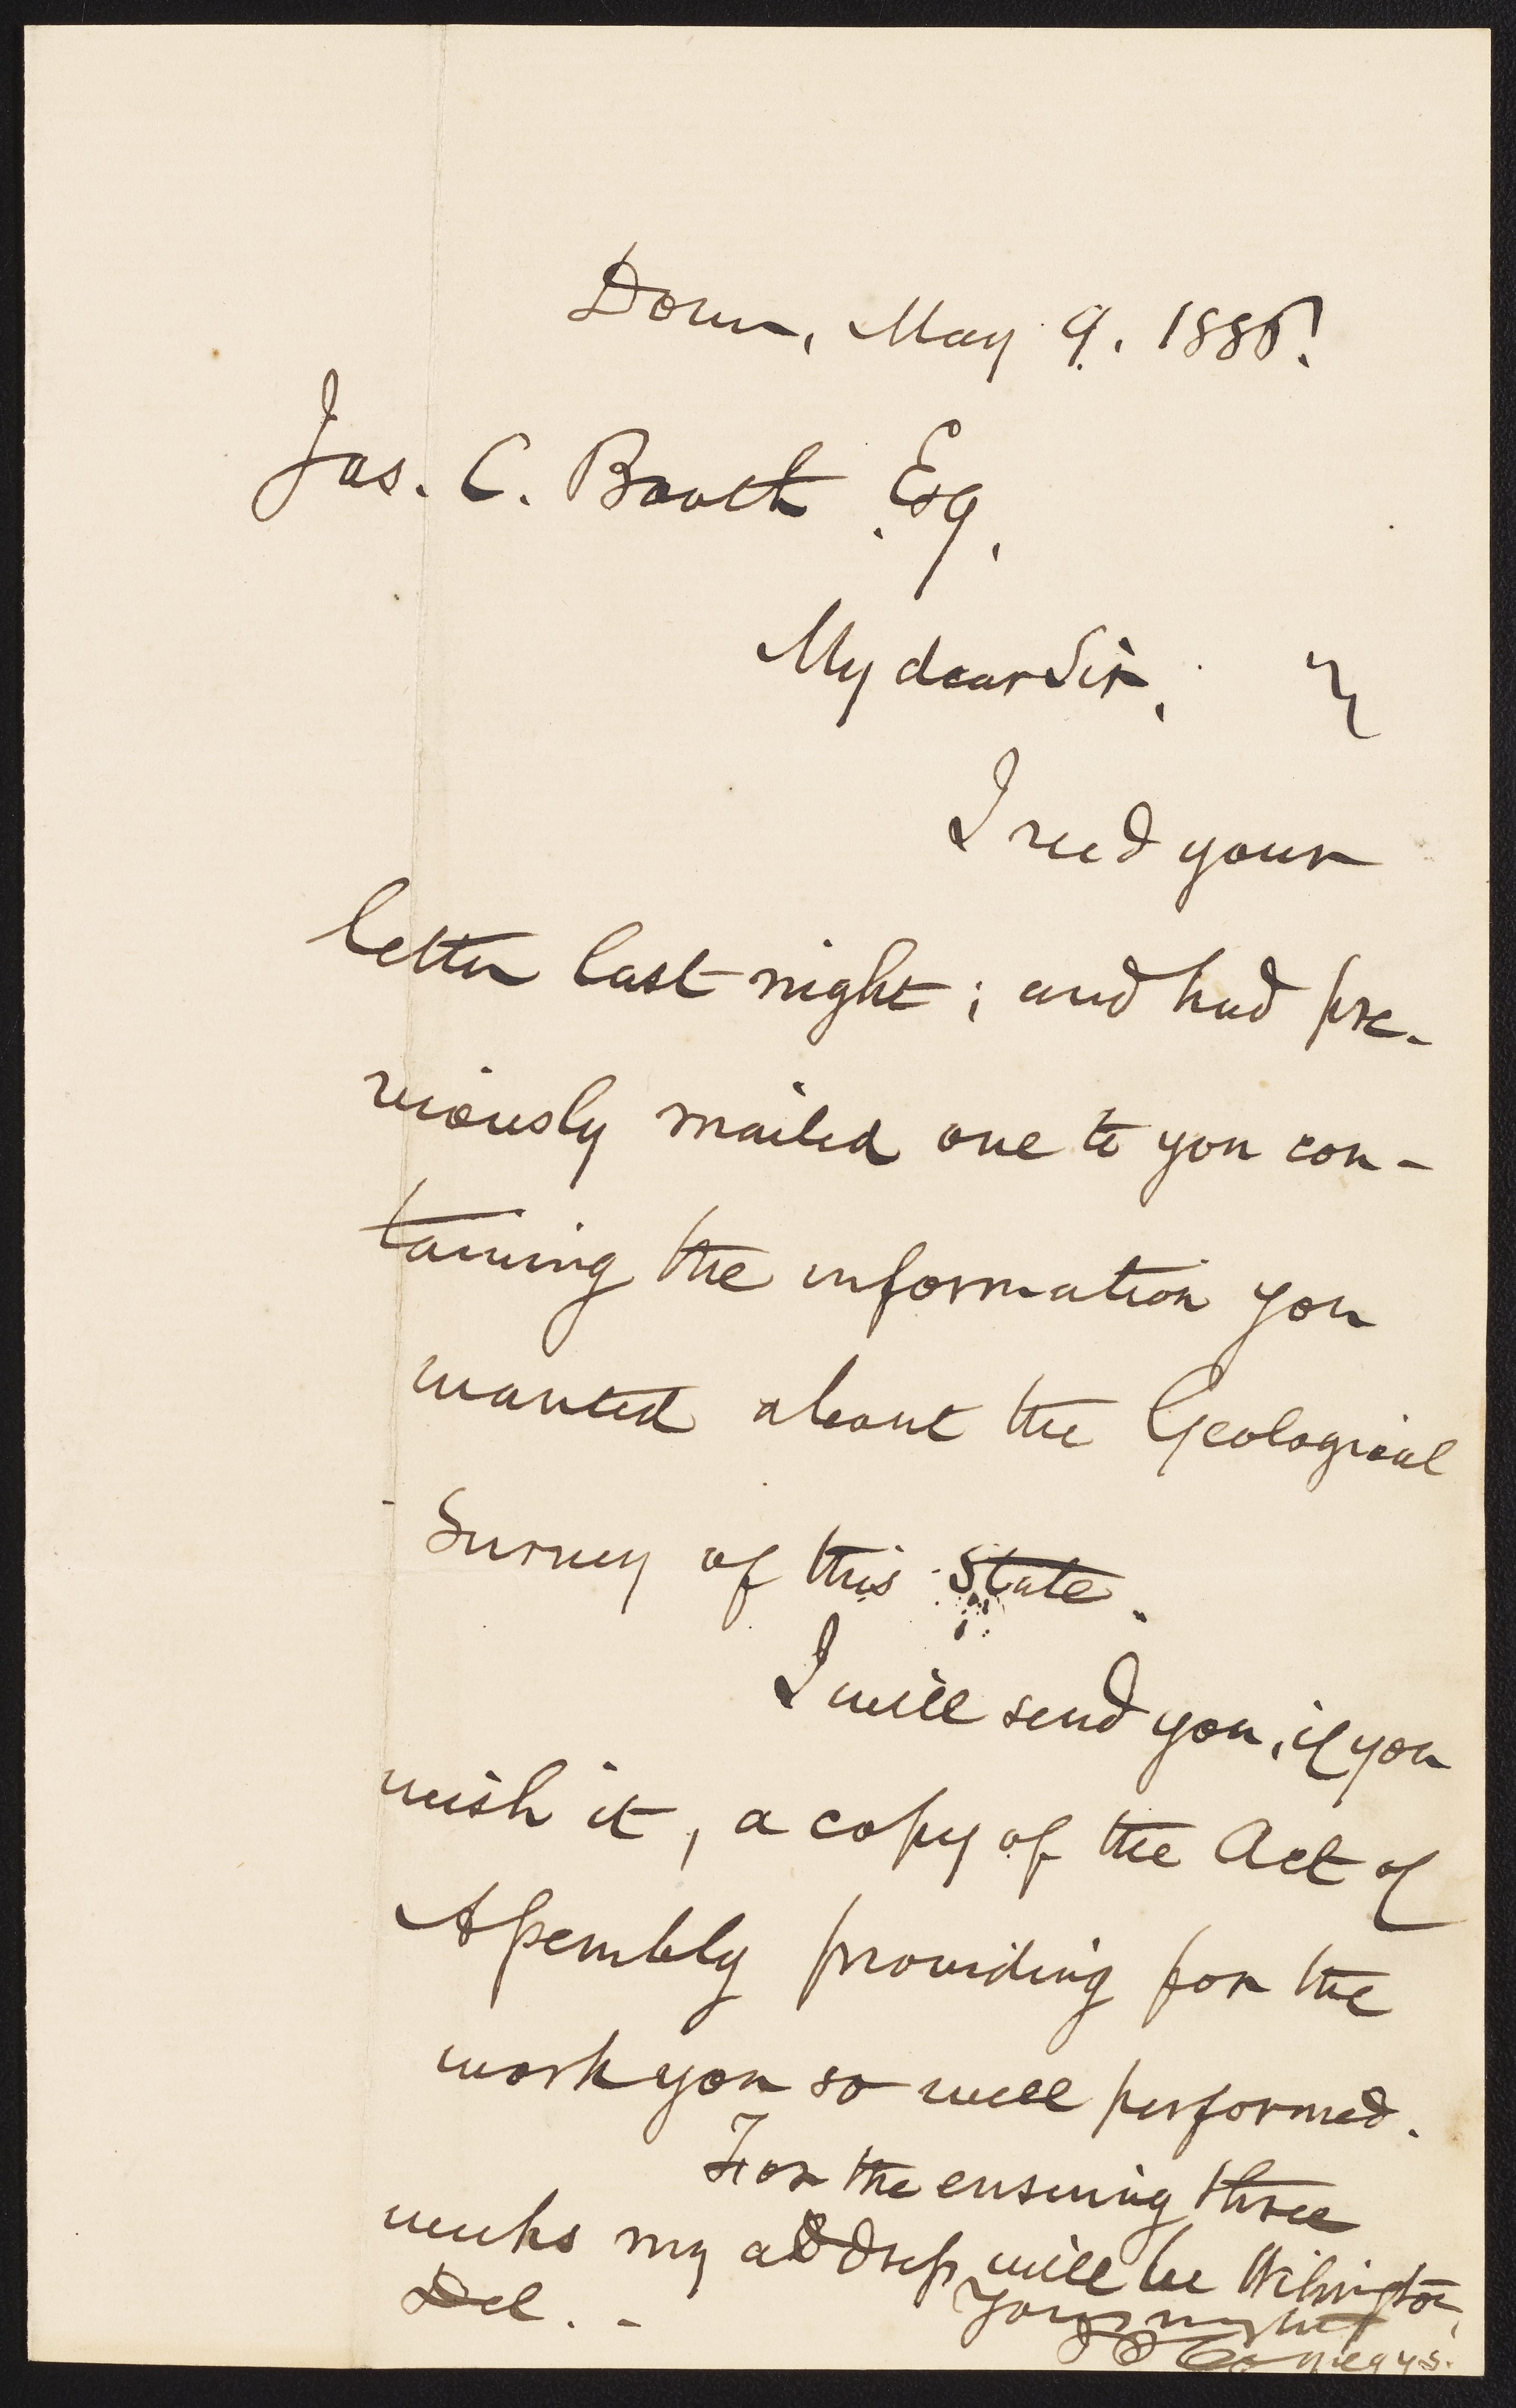 Dover, May 9. 1886.
Jas. C. Booth Esq.
My dear Sir,
I recd your
letter last night; and had pre-
viously mailed one to you con-
taining the information you
wanted about the Geological
Survey of this State.
I will send you, if you
wish it, a copy of the Act of
Assembly providing for the
work you so well performed.
For the ensuing three
weeks my address will be Wilmington,
Del. -
Yours
Comegys.